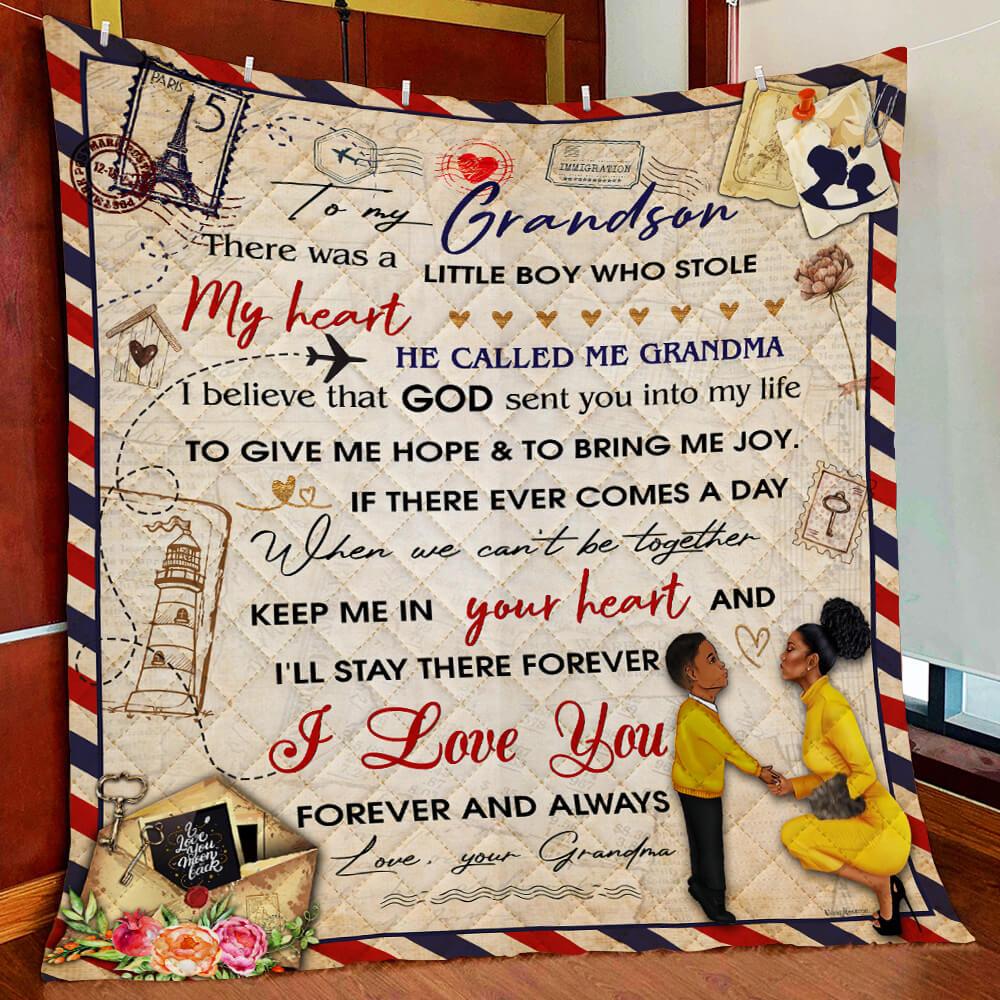 PARIS
5
12-18
IMMIGRATION
To my Grandson
There was a LITTLE BOY WHO STOLE
My heart
HE CALLED ME GRANDMA
I believe that GOD sent you into my life
TO GIVE ME HOPE & TO BRING ME JOY.
IF THERE EVER COMES A DAY
When we can't be together
KEEP ME IN your heart AND
I'LL STAY THERE FOREVER
I Love You
FOREVER AND ALWAYS
Love, your Grandma
I
Love
You
Moon
back